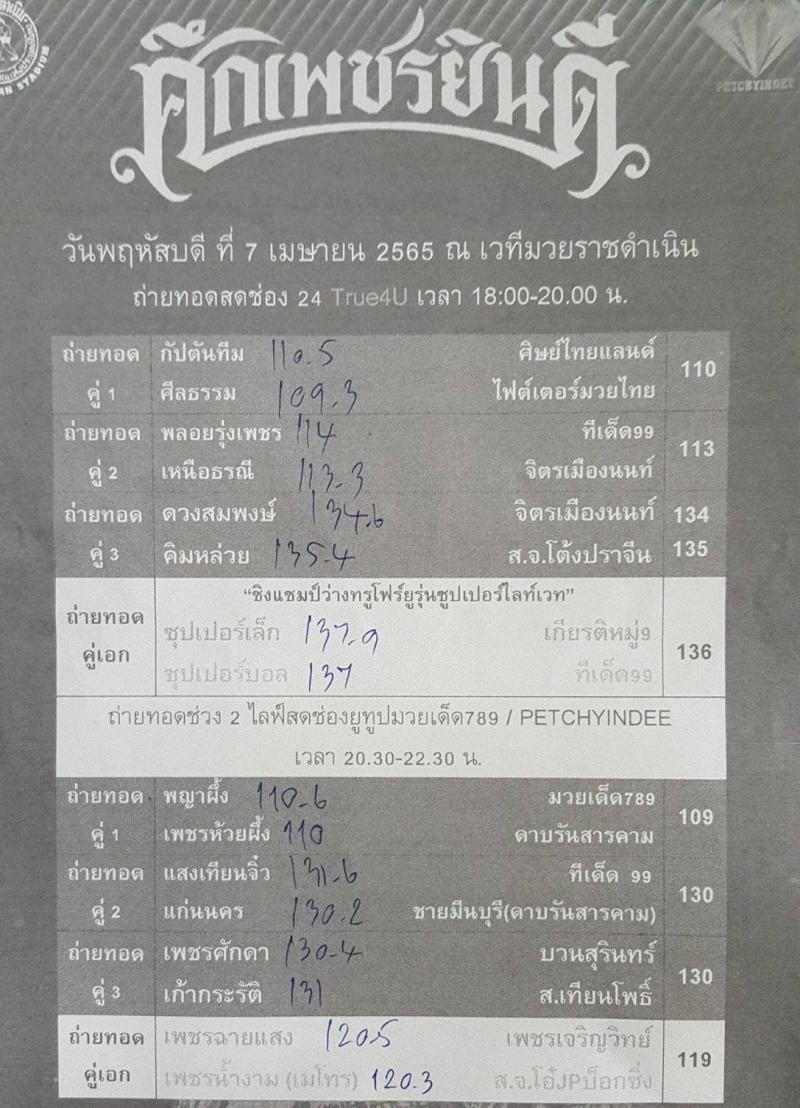 AN STADIUM
PETCHYINDEE
ศึกเพชรยินดี
วันพฤหัสบดี ที่ 7 เมษายน 2565 ณ เวทีมวยราชดำเนิน
ถ่ายทอดสดช่อง 24 True4U เวลา 18:00-20.00 น.
ถ่ายทอด กัปตันทีม 110.5 ศิษย์ไทยแลนด์ 110
คู่ 1 ศีลธรรม 109.3 ไฟต์เตอร์มวยไทย
ถ่ายทอด พลอยรุ่งเพชร 114 ทีเด็ด99 113
คู่ 2 เหนือธรณี 113.3 จิตรเมืองนนท์
ถ่ายทอด ดวงสมพงษ์ 134.6 จิตรเมืองนนท์ 134
คู่ 3 คิมหล่วย 135.4 ส.จ.โต้งปราจีน 135
"ชิงแชมป์ว่างทรูโฟร์ยูรุ่นซูปเปอร์ไลท์เวท"
ถ่ายทอด ซุปเปอร์เล็ก 137.9 เกียรติหมู่9 136
คู่เอก ซุปเปอร์บอล 137 ทีเด็ด99
ถ่ายทอดช่วง 2 ไลฟ์สดช่องยูทูปมวยเด็ด789 / PETCHYINDEE
เวลา 20.30-22.30 น.
ถ่ายทอด พญาผึ้ง 110.6 มวยเด็ด789 109
คู่ 1 เพชรห้วยผึ้ง 110 ดาบรันสารคาม
ถ่ายทอด แสงเทียนจิ๋ว 131.6 ทีเด็ด 99 130
คู่ 2 แก่นนคร 130.2 ชายมีนบุรี(ดาบรันสารคาม)
ถ่ายทอด เพชรศักดา 130.4 บวนสุรินทร์ 130
คู่ 3 เก้ากะรัติ 131 ส.เทียนโพธิ์
ถ่ายทอด เพชรฉายแสง 120.5 เพชรเจริญวิทย์ 119
คู่เอก เพชรน้ำงาม (เมโทร) 120.3 ส.จ.โอ๋JPบ็อกซิ่ง